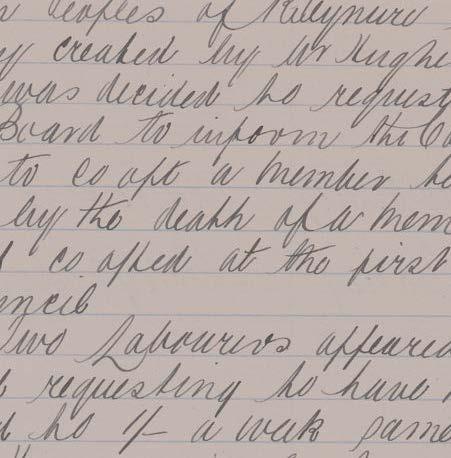 Peoples of Killynure
created by Mr Hughe
was decided to request
Board to inform the Co
to co opt a member to
by the death of a mem
co opted at the first
uncil
Two Labourers appeared
requesting to have
to 1/- a week same